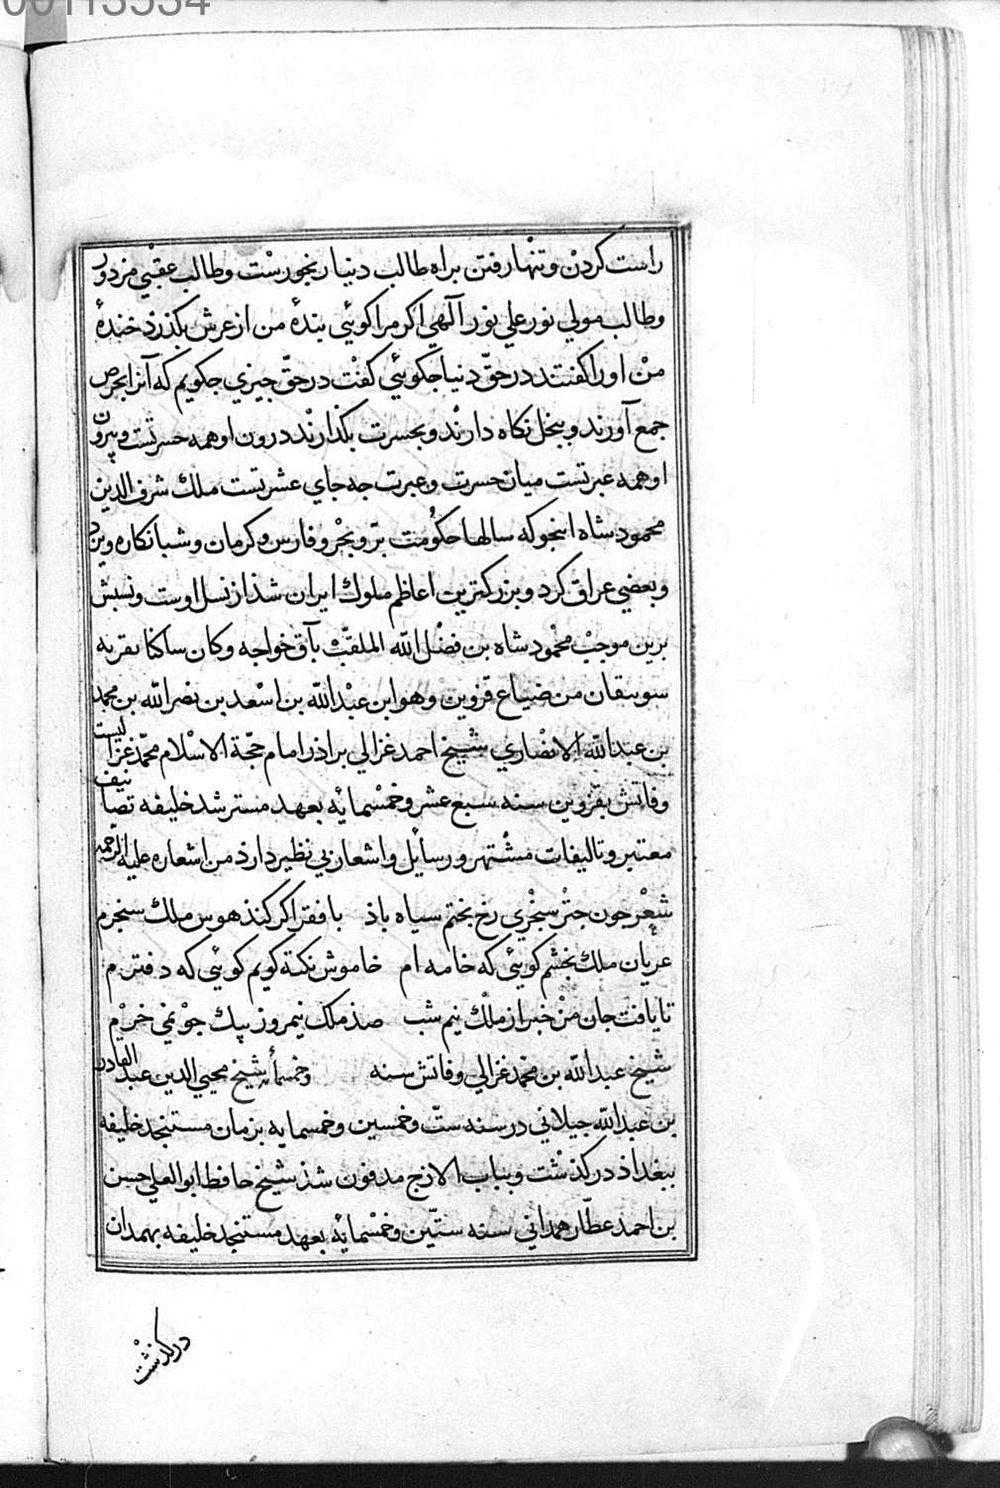 00113534
راست کردن و تنها رفتن براه طالب دنیا رنجورست و طالب عقبی مزدور
و طالب مولی نور علی نور آلهی اکر مرا کوئی بندهٔ من از عرش بکذرذ خندهٔ
من او را کفتند در حقّ دنیا جکوئی کفت در حقّ جیزی جکویم که آنرا بحرص
جمع آورند و ببخل نکاه دارند و بحسرت بکذارند درون او همه حسرتست و بیرون
او همه عبرتست میان حسرت و عبرت جه جای عشرتست ملك شرف الدین
محمود شاه اینجو که سالها حکومت برّ و بحر و فارس و کرمان و شبانکاره و یزد
و بعضی عراق کرد و بزرکترین اعاظم ملوك ایران شذ از نسل اوست و نسبش
برین موجب محمود شاه بن فضل الله الملقّب بآق خواجه و کان ساکنا بقریه
سوسقان من ضیاع قزوین و هو ابن عبد الله بن اسعد بن نصر الله بن محمد
بن عبد الله الانصاری شیخ احمد غزالی براذر امام حجّة الاسلام محمّد غزالیست
وفاتش بقزوین سنه سبع عشر و خمسمایه بعهد مسترشد خلیفه تصانیف
معتبر و تالیفات مشتهر و رسایل و اشعار بی نظیر دارذ من اشعاره علیه الرحمه
شعر جون جتر سنجری رخ بختم سیاه باذ با فقر اکر کنذ هوس ملك سنجرم
عریان ملك بخشم کوئی که خامه ام خاموش نکته کویم کوئی که دفترم
تا یافت جان من خبر از ملك نیم شب صذ ملك نیمروز بیك جو نمی خرم
شیخ عبد الله بن محمد غزالی وفاتش سنه و خمسمأیه شیخ محیی الدین عبد القادر
بن عبد الله جیلانی در سنه ستّ و خمسین و خمسمایه بزمان مستنجد خلیفه
ببغداذ درکذشت و بباب الازج مدفون شذ شیخ حافظ ابو العلی حسن
بن احمد عطّار همدانی سنه ستّین و خمسمایه بعهد مستنجد خلیفه بهمدان
درکذشت